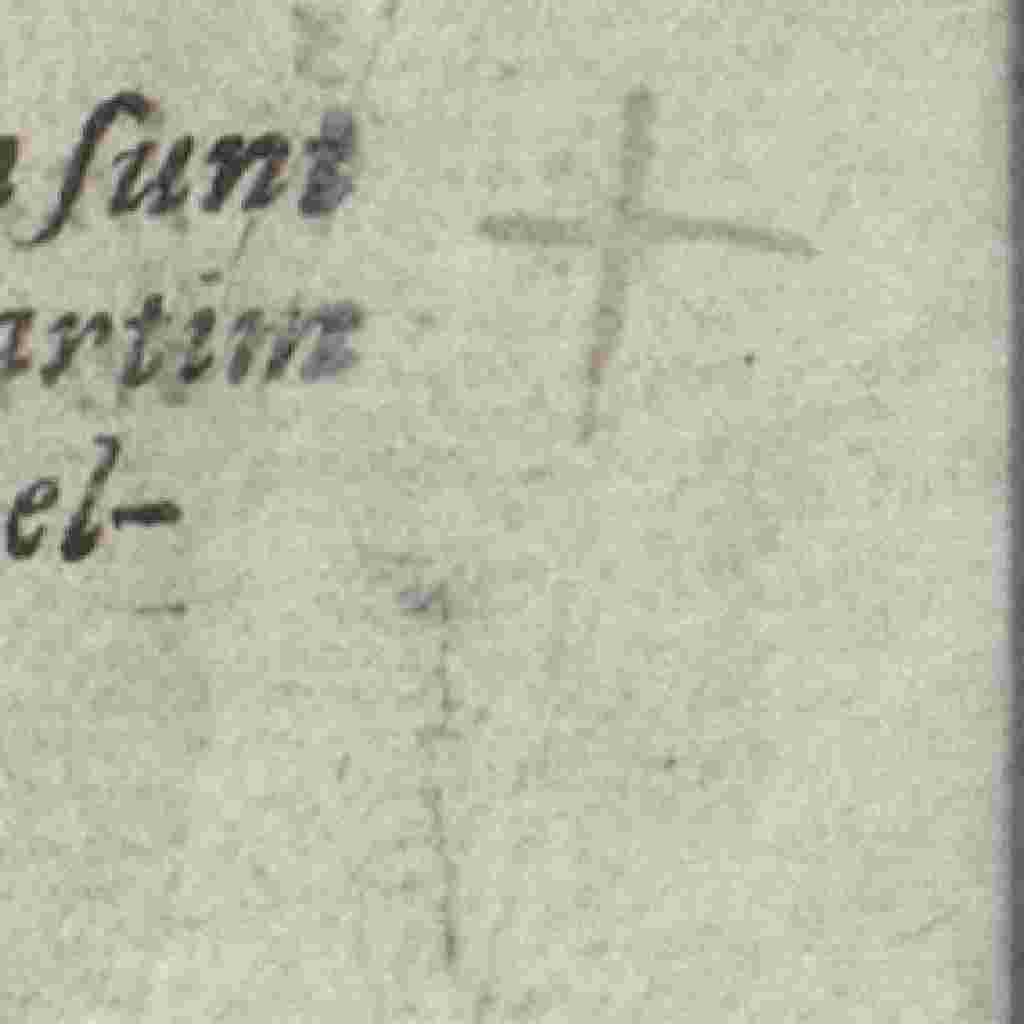 ſunt
artim
el-
+